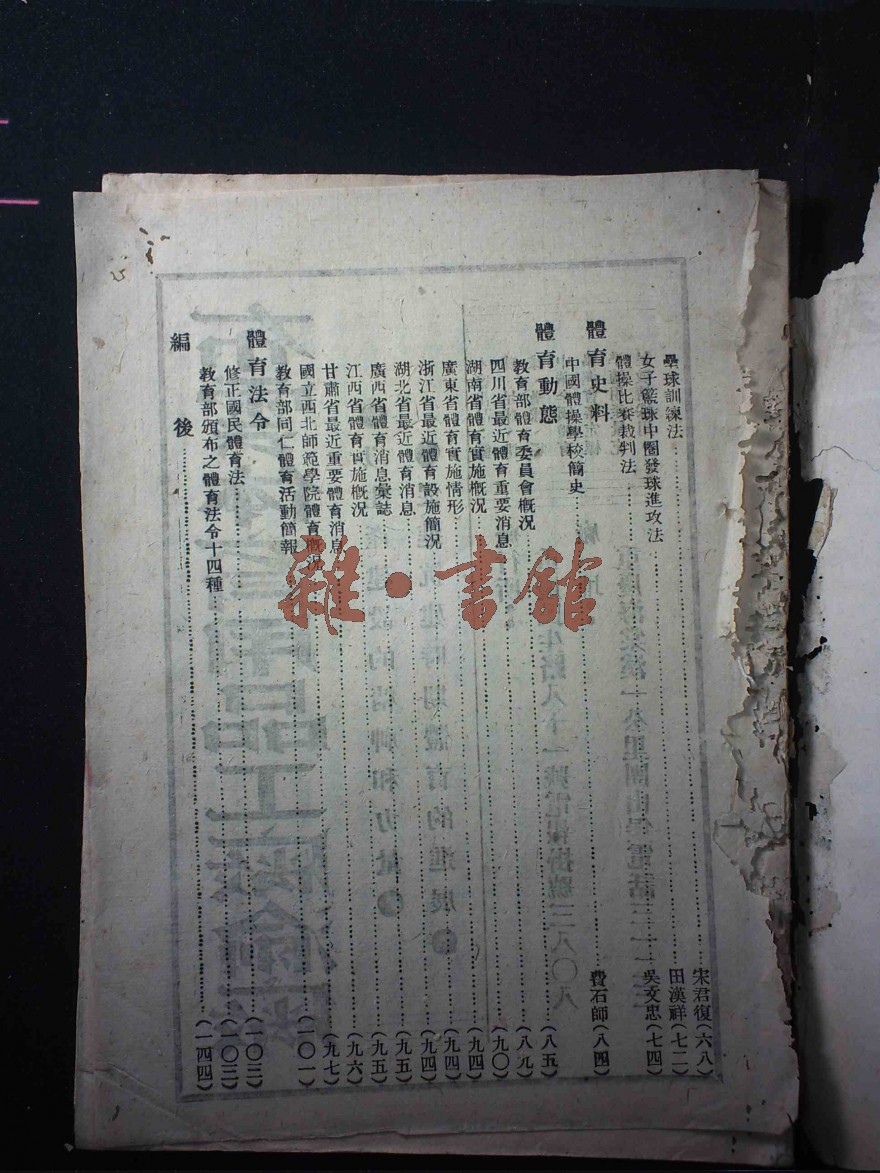 壘球訓練法……宋君復(六八)
女子籃球中圈發球進攻法……田漢祥(七二)
體操比賽裁判法……吳文忠(七四)
體育史料
中國體操學校簡史……費石師(八四)
體育動態
教育部體育委員會概況……(八五)
四川省最近體育重要消息……(八九)
湖南省體育實施概況……(九〇)
廣東省體育實施情形……(九四)
浙江省最近體育設施簡況……(九四)
湖北省最近體育消息……(九四)
廣西省體育消息彙誌……(九五)
江西省體育實施概況……(九五)
甘肅省最近重要體育消息……(九六)
國立西北師範學院體育概況……(九七)
教育部同仁體育活動簡報……(一〇一)
體育法令
修正國民體育法……(一〇三)
教育部頒布之體育法令十四種……(一〇三)
編後……(一四四)
雜·書館